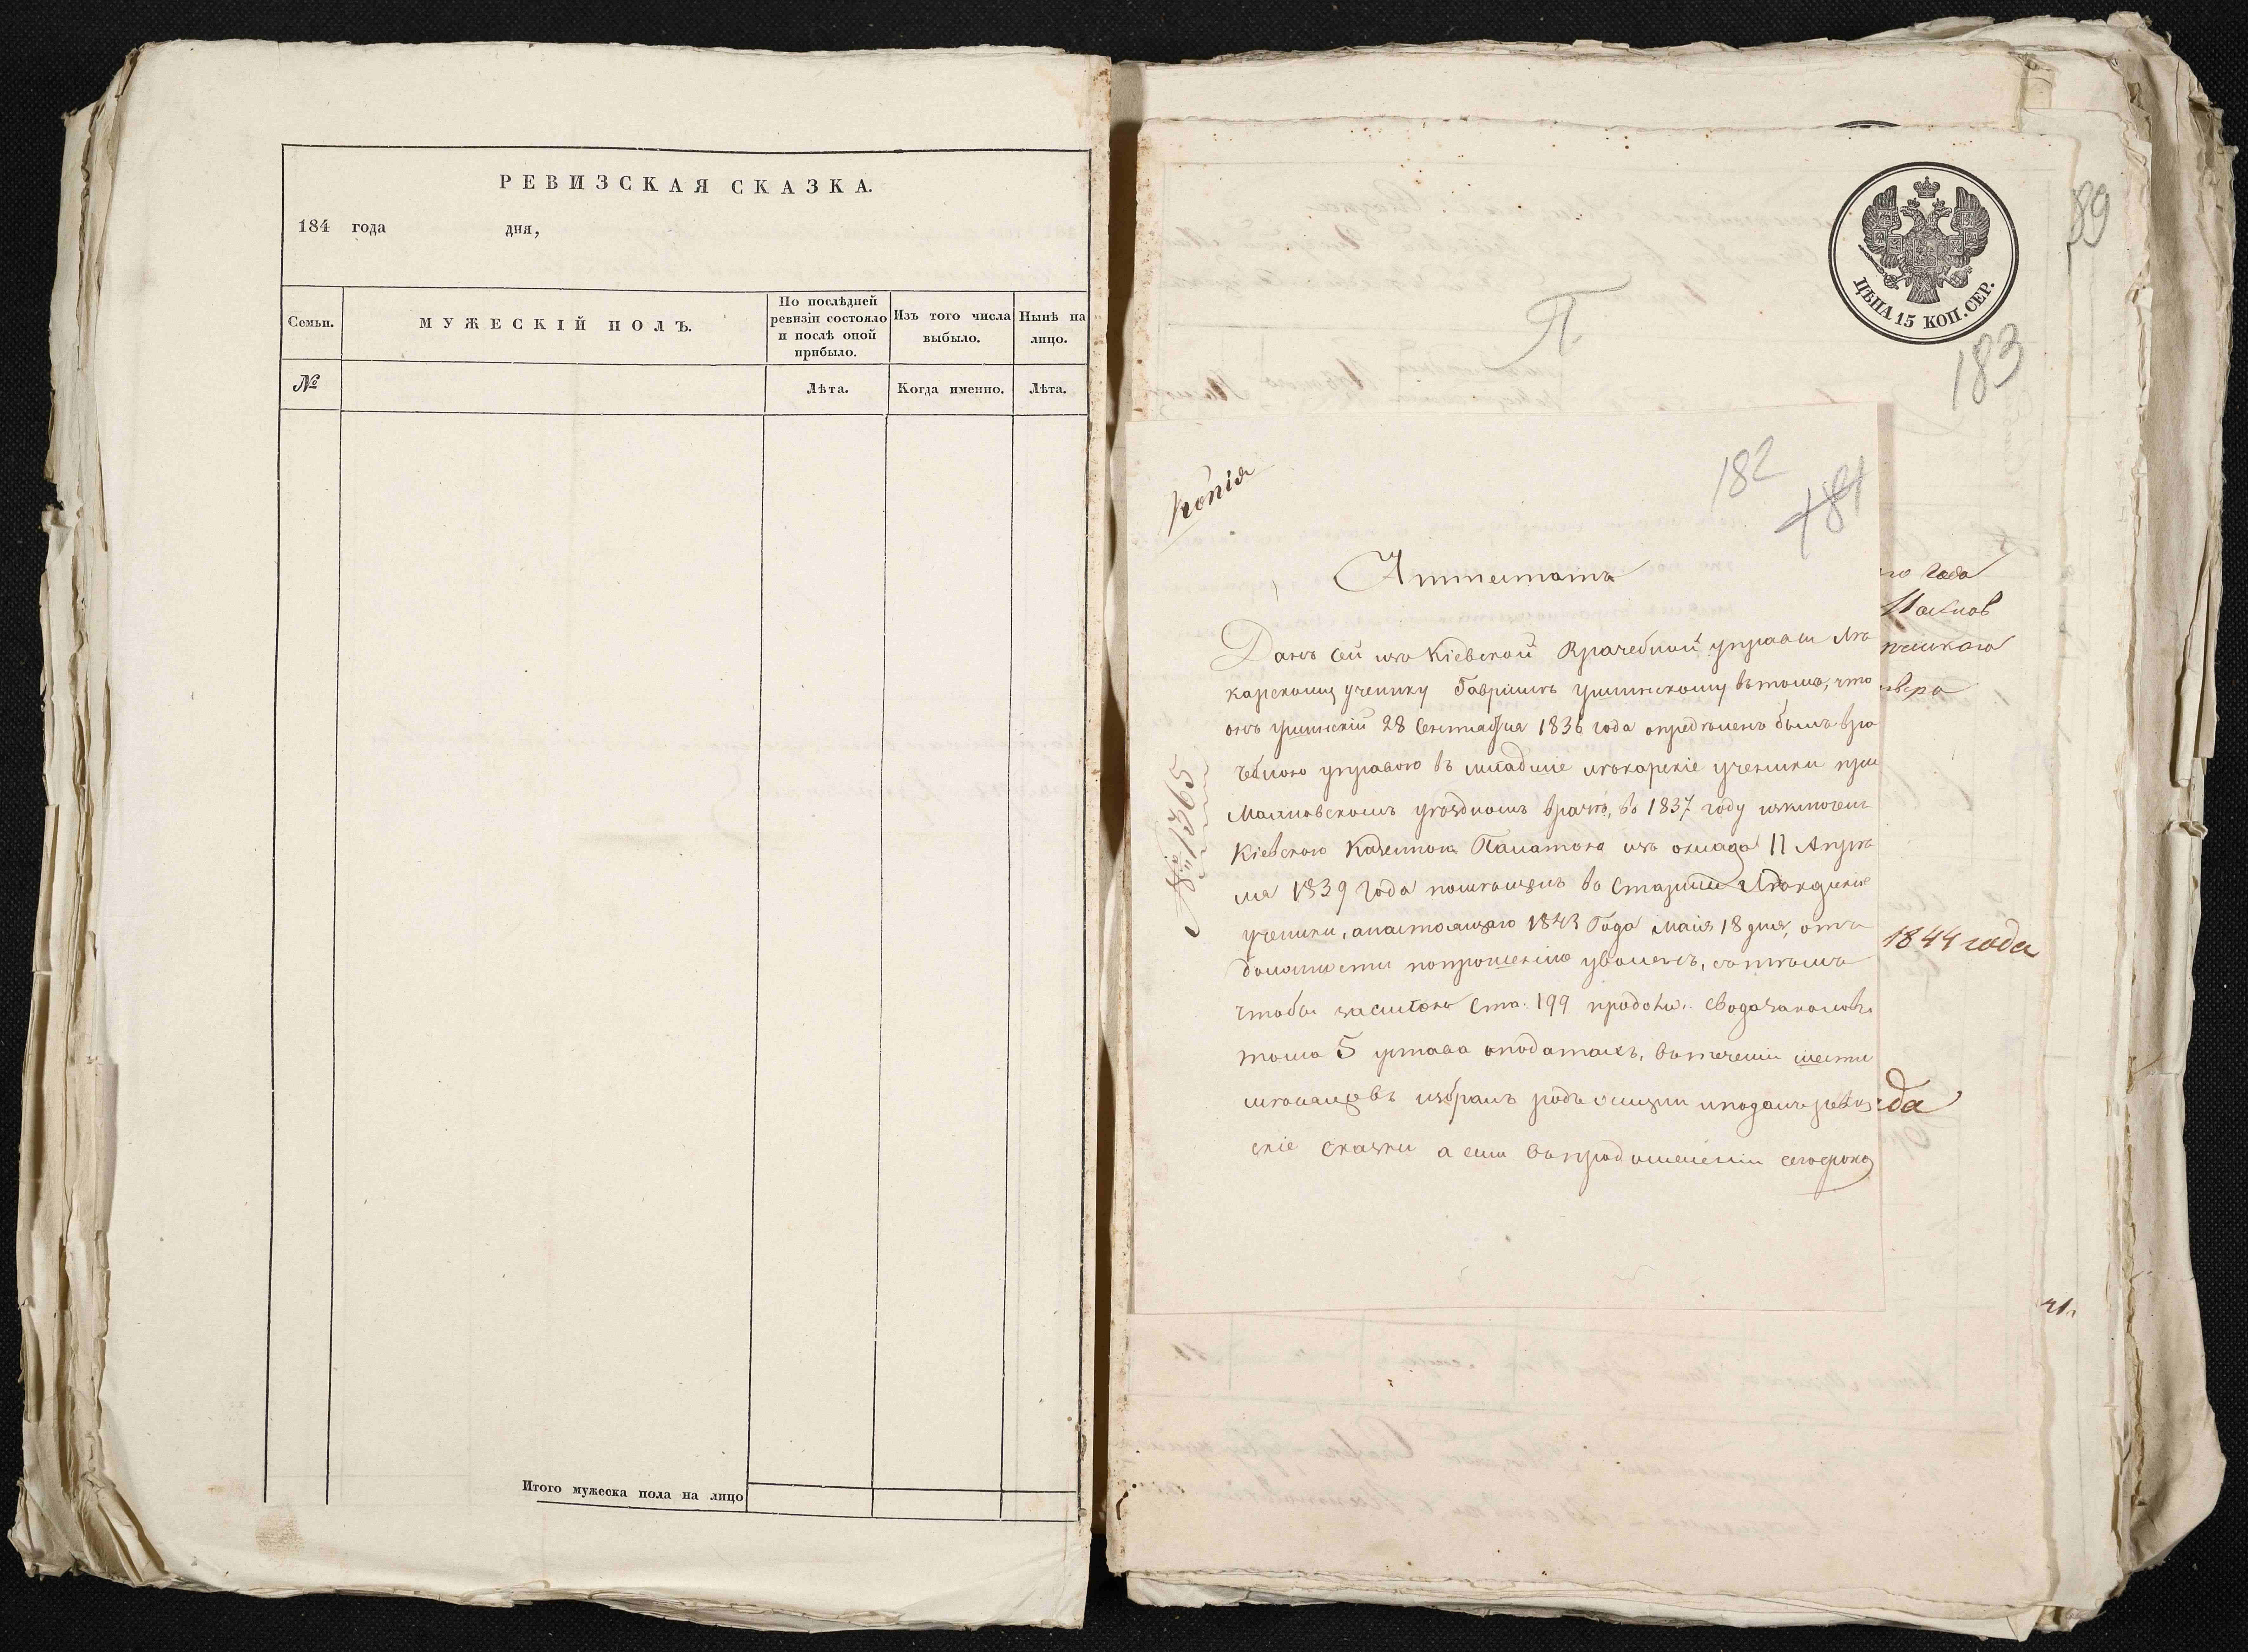 РЕВИЗСКАЯ СКАЗКА.
184 года дня,
Семьи.
МУЖЕСКІЙ ПОЛЪ.
По послѣдней
ревизіи состояло
и послѣ оной
прибыло.
Изъ того числа
выбыло.
Нынѣ на
лицо.
№
Лѣта.
Когда именно.
Лѣта.
Итого мужеска пола на лицо
89
ЦѢНА 15 КОП. СЕР.
П.
183
Копія
182
181
Аттестатъ
Данъ сей изъ Кіевской Врачебной управы лѣ
карскому ученику Гавріилѣ Ушинскому въ томъ, что
онъ Ушинскій 28 Сентября 1836 года опредѣленъ былъ вра
чебною управою въ младшіе лѣкарскіе ученики при
Махновскомъ уѣздномъ врачѣ, въ 1837 году изключенъ
Кіевскою Казенною Палатою изъ оклада 11 Апрѣ
ля 1839 года помѣщенъ въ Старшіе Лѣкарскіе
ученики, а настоящаго 1843 Года Маія 18 дня, отъ
должности по прошенію уволенъ, съ тѣмъ
чтобы на силѣ Ста. 199 продолж. Свода законовъ
тома 5 устава о податяхъ, въ теченіи шести
мѣсяцевъ избралъ родъ жизни и подалъ ревиз
скіе сказки а если въ продолженіи сего срока
№ 1365
го года
Махнов
1844 года
да